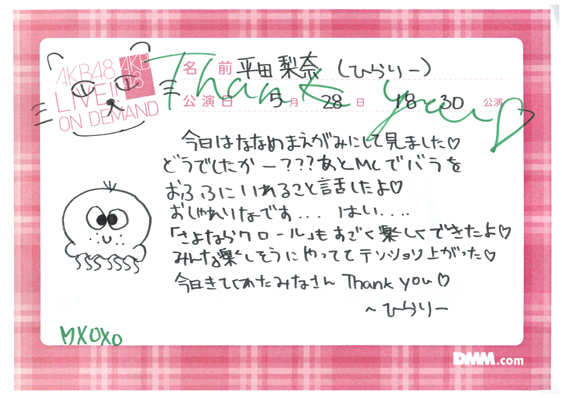 AKB48
LIVE!!
ON DEMAND
AKB
48
名前 平田梨奈(ひらりー)
Thank you♡
公演日 5月 28日 18:30 公演
今日はななめまえがみにして見ました♡
どうでしたかー???あとMCでバラを
おふろにいれること話したよ♡
おしゃれりなです... はい....
「さよならクロール」もすごく楽しくできたよ♡
みんな楽しそうにやっててテンション上がった♡
今日きてくれたみなさん Thank you♡
~ひらりー
XOXO
DMM.com